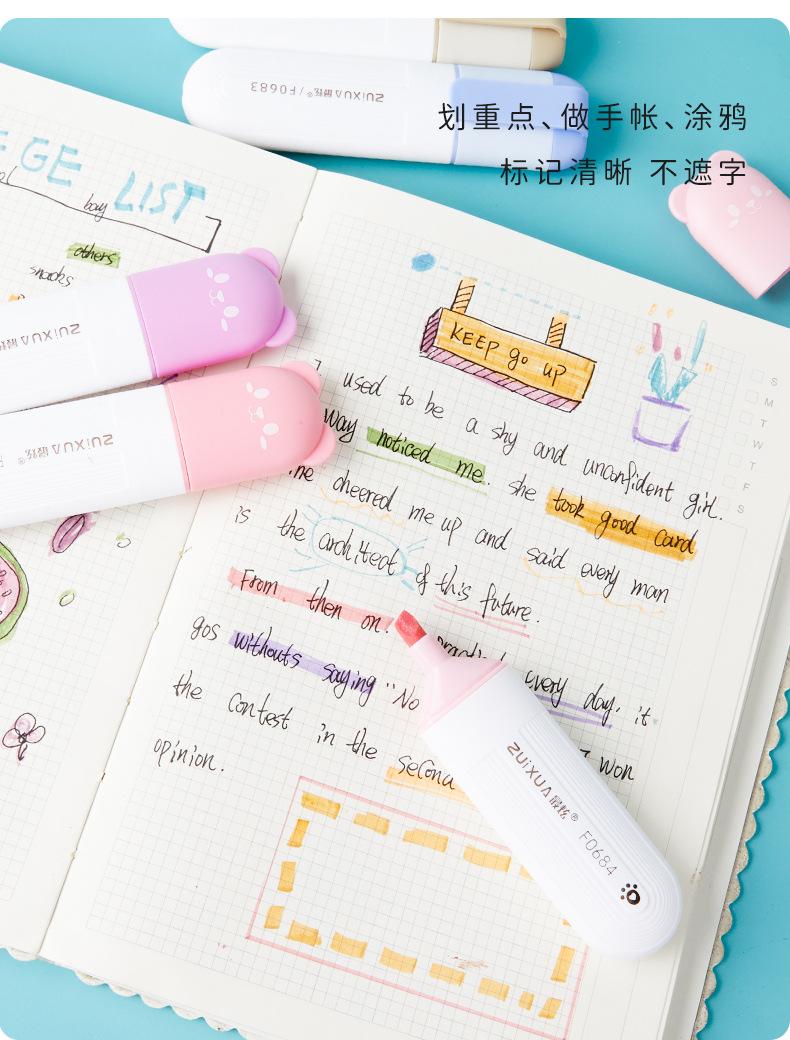 划重点、做手帐、涂鸦
标记清晰 不遮字
ZUiXUA最炫® / F0683
GE LIST
bay
others
snacks
ZUiXUA最炫
ZUiXUA最炫®
KEEP go up
S
M
T
W
T
F
S
I used to be a shy and unconfident girl.
way noticed me. she took good card
me cheered me up and said every man
is the architect of this future.
From then on. every day. it
gos withouts saying "No won
the contest in the second
opinion.
ZUiXUA最炫® F0684